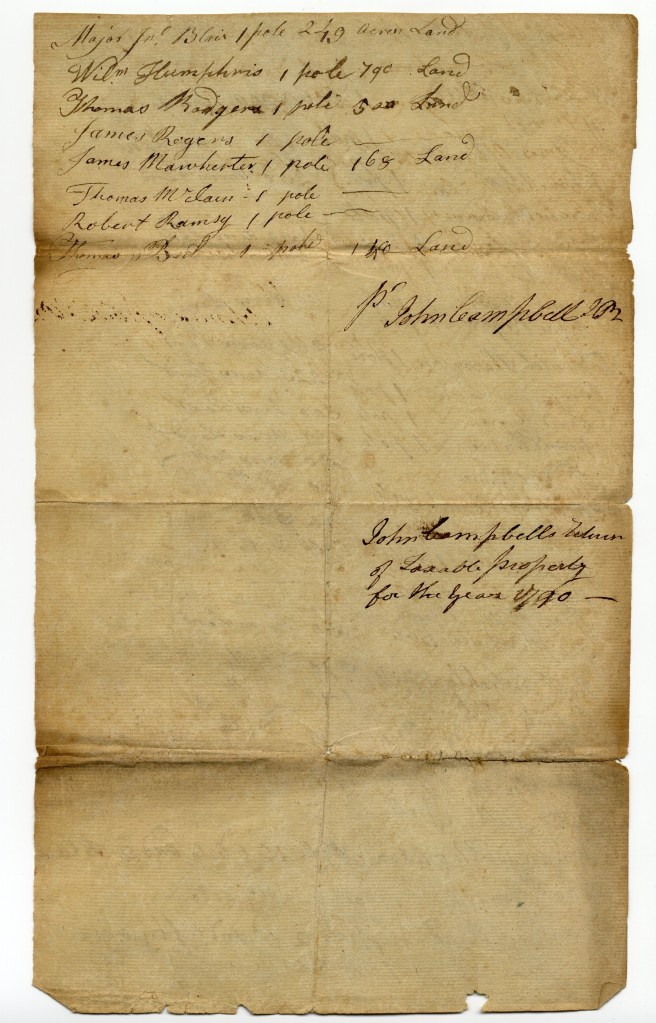 Major Jnº Blair 1 pole 249 Acres Land
Wilm Humphris 1 pole 790 Land
Thomas Rodgers 1 pole 500 Land
James Rogers 1 pole —
James Mawherter 1 pole 168 Land
Thomas McClain 1 pole —
Robert Ramsy 1 pole —
Thomas 1 pole 140 Land
pr John Campbell
John Campbells Return
of Taxable property
for the Year 1790 —